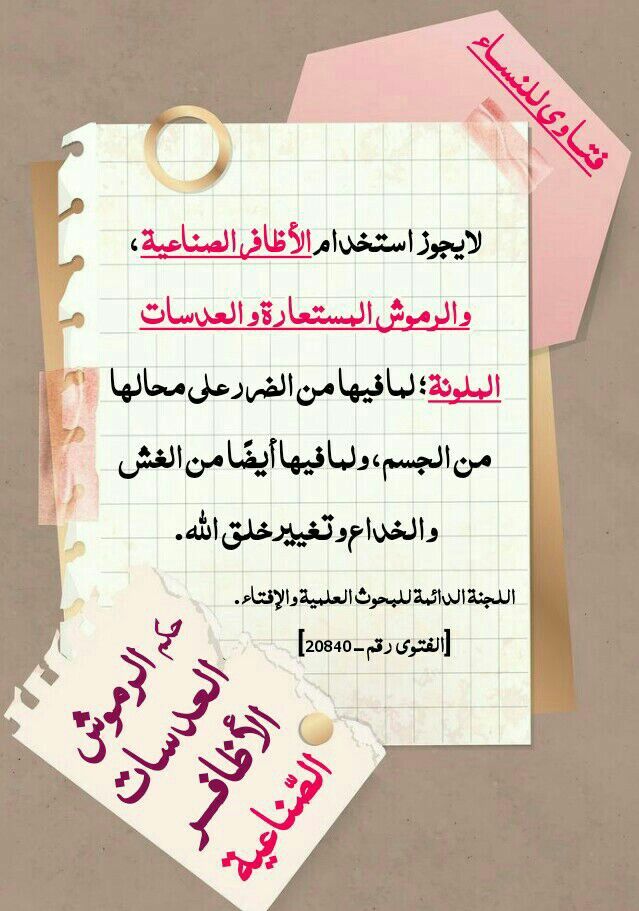 فتاوى للنساء
لايجوز استخدام الأظافر الصناعية،
والرموش المستعارة والعدسات
الملونة؛ لما فيها من الضرر على محالها
من الجسم، ولما فيها أيضًا من الغش
والخداع وتغيير خلق الله.
اللجنة الدائمة للبحوث العلمية والإفتاء.
[الفتوى رقم - 20840]
حكم الرموش
العدسات
الأظافر
الصّناعية